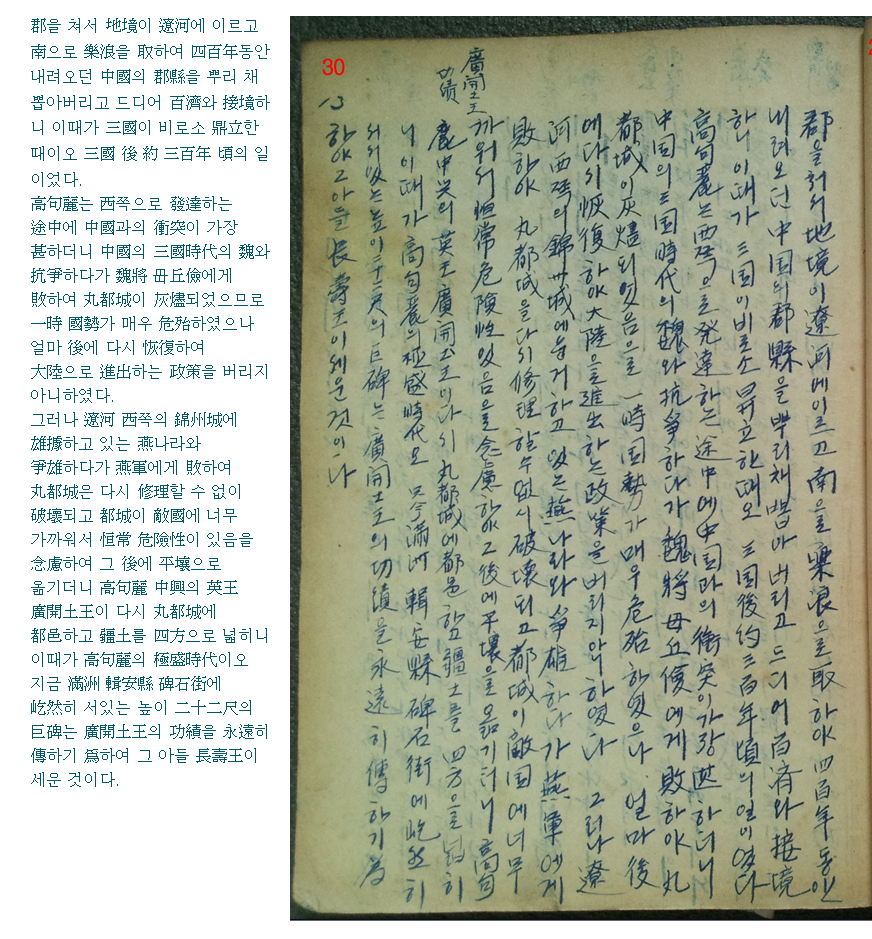 郡을 쳐서 地境이 遼河에 이르고
南으로 樂浪을 取하여 四百年동안
내려오던 中國의 郡縣을 뿌리 채
뽑아버리고 드디어 百濟와 接境하
니 이때가 三國이 비로소 鼎立한
때이오 三國 後 約 三百年 頃의 일
이었다.
高句麗는 西쪽으로 發達하는
途中에 中國과의 衝突이 가장
甚하더니 中國의 三國時代의 魏와
抗爭하다가 魏將 毌丘儉에게
敗하여 丸都城이 灰燼되었으므로
一時 國勢가 매우 危殆하였으나
얼마 後에 다시 恢復하여
大陸으로 進出하는 政策을 버리지
아니하였다.
그러나 遼河 西쪽의 錦州城에
雄據하고 있는 燕나라와
爭雄하다가 燕軍에게 敗하여
丸都城은 다시 修理할 수 없이
破壞되고 都城이 敵國에 너무
가까워서 恒常 危險性이 있음을
念慮하여 그 後에 平壤으로
옮기더니 高句麗 中興의 英王
廣開土王이 다시 丸都城에
都邑하고 疆土를 四方으로 넓히니
이때가 高句麗의 極盛時代이오
지금 滿洲 輯安縣 碑石街에
屹然히 서있는 높이 二十二尺의
巨碑는 廣開土王의 功績을 永遠히
傳하기 爲하여 그 아들 長壽王이
세운 것이다.
30
廣開土王
功績
郡을처서地境이遼河에이르고 南으로樂浪으로取하야 四百年동안
내려오던 中国의郡縣을뿌리채뽑아버리고 드디어百済와接境
하니 이때가 三国이비로소鼎立한때오 三国後約三百年頃의일이였다
高句麗는西쪽으로発達하는途中에中国과의衝突이가장甚하더니
中国의三国時代의魏와抗爭하다가 魏將毋丘儉에게敗하야丸
都城이灰燼되였음으로 一時国勢가매우危殆하였으나 얼마後
에다시恢復하야大陸을進出하는政策을버리지아니하였다 그러나遼
河西쪽의錦州城에웅거하고있는燕나라와爭雄하다가燕軍에게
敗하야 丸都城을다시修理할수없시破壞되고都城이敵国에너무
까워서恒常危険性있음을念慮하야그後에平壤으로옮기더니高句
麗中兴의英王廣開土王이다시丸都城에都邑하고疆土를四方으로넓히
니이때가高句麗의極盛時代오 只今滿洲 輯安縣 碑石街에屹然히
서서있는높이二十二尺의巨碑는廣開土王의功績을永遠히傳하기爲
하야그아들長壽王이세운것이다